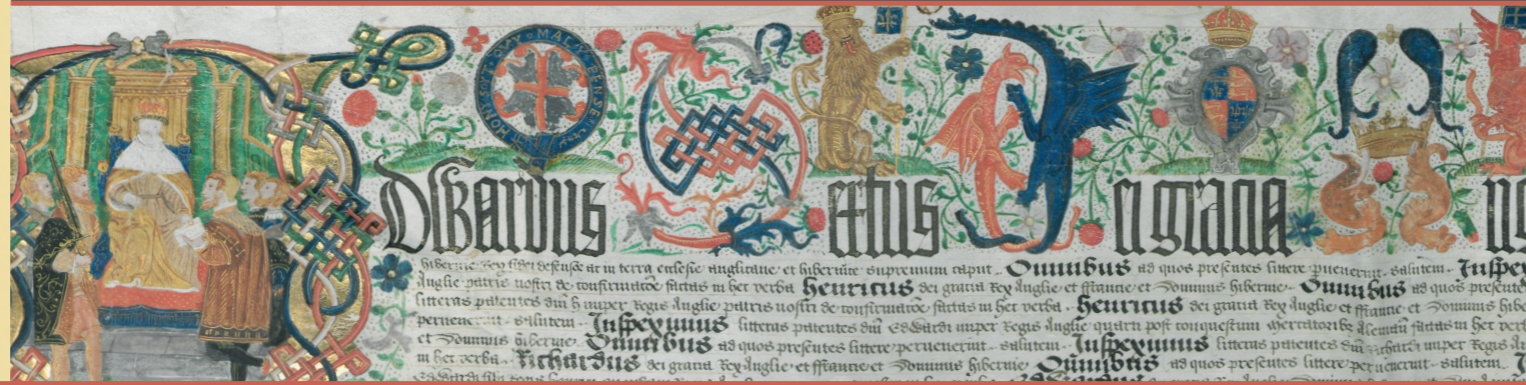 HONI SOIT QVY MAL Y PENSE
EDwardus Sextus Dei gracia
hibernie Rex fidei defensor ac in terra ecclesie anglicane et hibernice supremum caput - Omnibus ad quos presentes littere pervenerint - salutem - Inspex
Anglie patris nostri de confirmacoe factas in hec verba Henricus dei gratia Rex Anglie et ffrancie et Dominus hibernie - Omnibus ad quos present
litteras patentes dni h nuper Regis Anglie patris nostri de confirmacoe factas in hec verba - Henricus dei gratia Rex Anglie et ffrancie et Dominus hibe
pervenerint - salutem - Inspeximus litteras patentes dni Edwardi nuper Regis Anglie quarti post conquestum mercatoribz factas in hec verb
et Dominus hibernie - Omnibus ad quos presentes littere pervenerint - salutem - Inspeximus litteras patentes dni Richardi nuper Regis An
in hec verba - Richardus dei gratia Rex Anglie et ffrancie et Dominus hibernie - Omnibus ad quos presentes littere pervenerint - salutem -